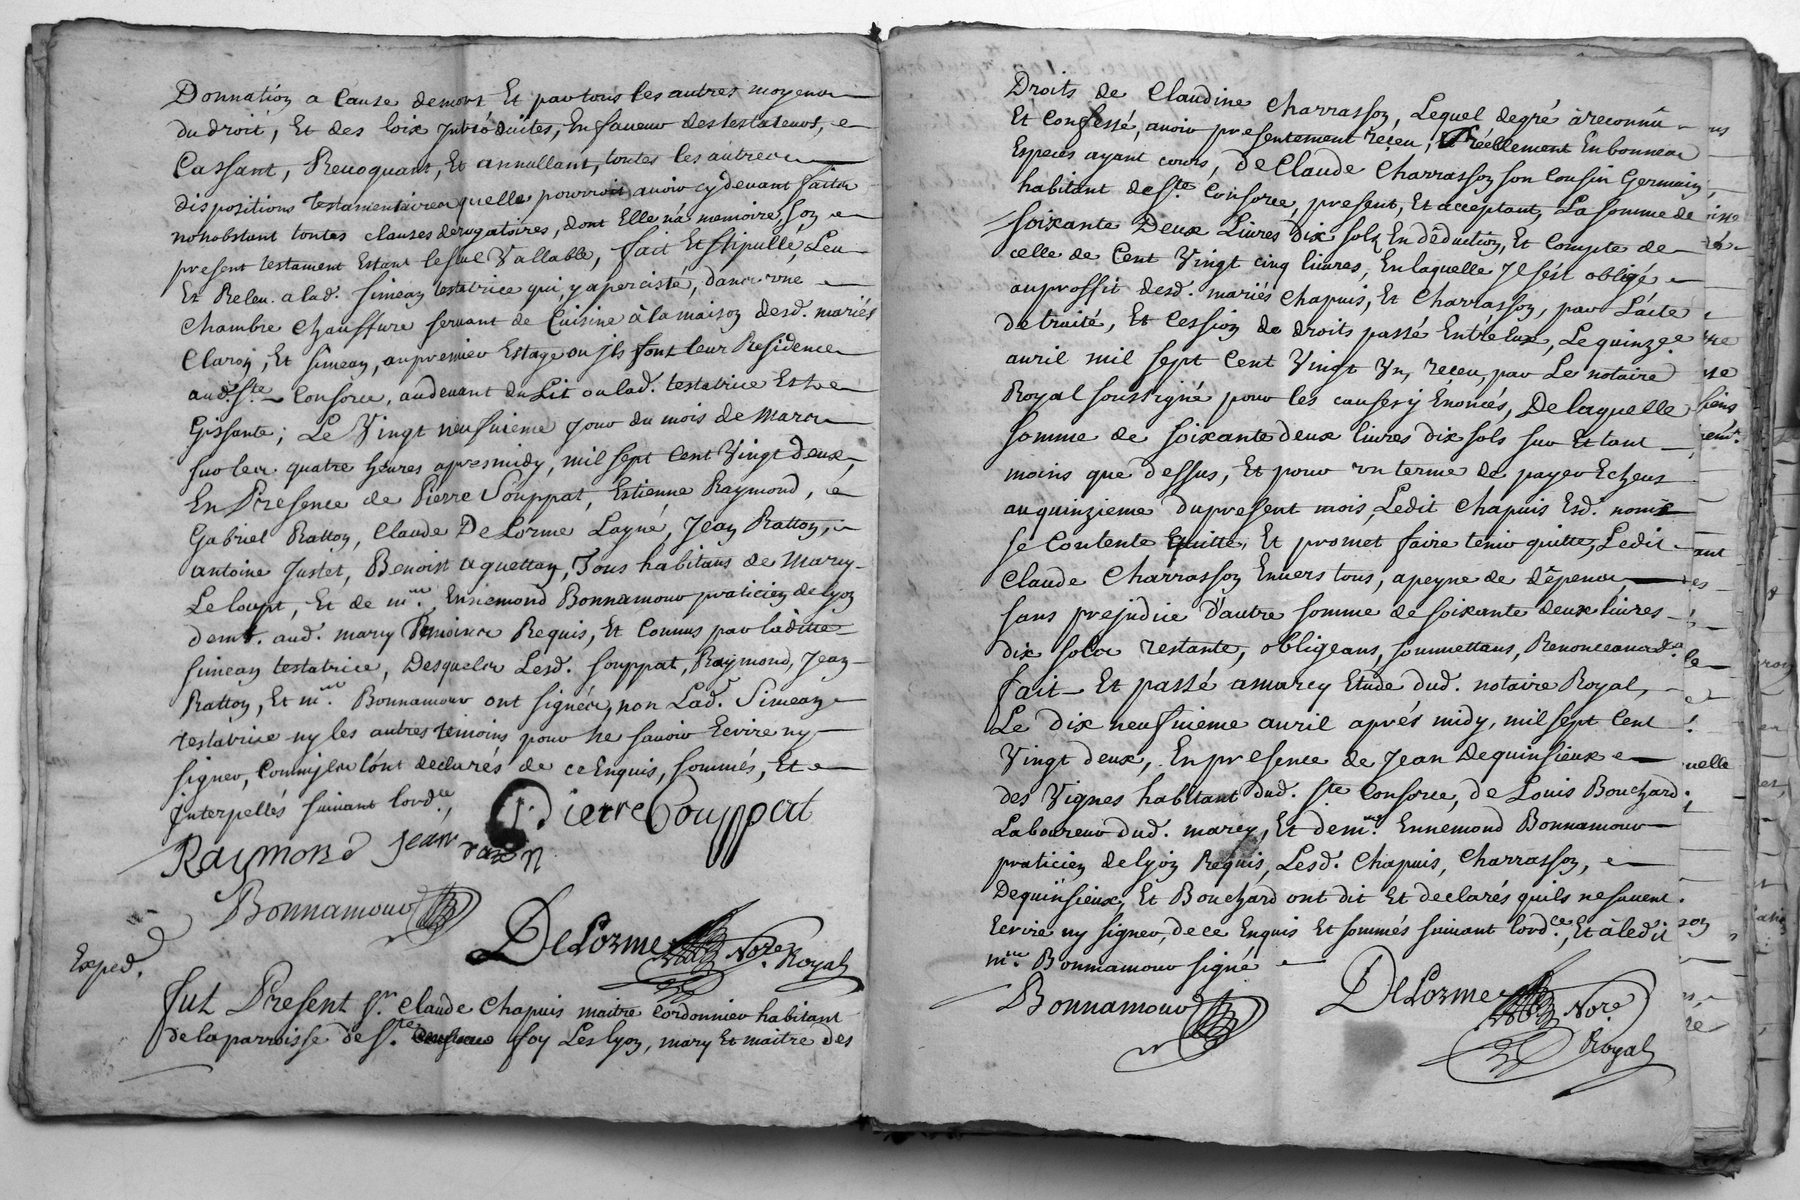 Donnation a Cause demort Et par tous les autres moyens
du droit, Et des loix Introduites, En faveur des testateurs, e
Cassant, Revoquant, Et annullant, toutes les autres
dispositions testamentaires quelle pourroit avoir cy devant faites
nonobstant toutes clauses derogatoires, dont Elle n'a memoire, son e
present testament Estant le seul Vallable, fait Et stipullé, Leu
Et Releu a lad. simean testatrice qui, y a perciste, dans vne
Chambre Chauffure servant de Cuisine à la maison desd. mariés
Claron, Et simean, au premier Estage ou jls font leur Residence
aud. Ste. Consorce, audevant du Lit ou lad. testatrice Est
Gissante; Le Vingt neufvieme jour du mois de mars
sur les quatre heures apres midy, mil sept Cent Vingt deux,
En Presence de Pierre Souppat, Estienne Raymond, é
Gabriel Ratton, Claude DeLorme Layné, Jean Ratton,
antoine Justet, Benoist aquettan, Tous habitans de Marcy
Le loupt, Et de me. Ennemond Bonnamour praticien de lyon
demt. aud. marcy Temoins Requis, Et Connus par ladite
simean testatrice, Desquels Lesd. souppat, Raymond, Jean
Ratton, Et me. Bonnamour ont signés, non Lad. Simean
testatrice ny les autres temoins pour ne savoir Ecrire ny
signer, Comm'jls l'ont declarés de ce Enquis, sommés, Et e
jnterpellés suivant l'ordce.
Pierre Souppat
Raymond Jean raton
Bonnamour
DeLorme Nore. Royal
Exped.
fut Present sr. Claude Chapuis maitre Cordonnier habitant
de la parroisse de Ste. foy Les lyon, mary Et maitre des
Droits de Claudine Charrasson, Lequel degré à reconnû
Et Confessé, avoir presentement reçeu, Réellement En bonnes
Especes ayant cours, de Claude Charrasson son Cousin Germain,
habitant de Ste. Consorce, present, Et acceptant, La somme de
soixante Deux Livres dix sols, En déduction, Et Compte de
celle de Cent Vingt cinq livres, En laquelle Jl s'est obligé
au proffit desd. mariés Chapuis, Et Charrasson, par L'acte
de traité, Et Cession de droits passé Entre Eux, Le quinze
avril mil sept Cent Vingt Vn, reçeu, par Le notaire
Royal soussigné pour les causes y Enoncés, De laquelle
somme de soixante deux livres dix sols sur Et tant
moins que dessus, Et pour vn terme de payer Echeus
au quinzieme du present mois, Ledit Chapuis Esd. noms
se Contente quitte, Et promet faire tenir quitte, Ledit
Claude Charrasson Envers tous, a peyne de dépens,
sans prejudice d'autre somme de soixante deux livres
dix sols restante, obligeans, soummettans, Renonceans &a.
fait Et passé a marcy Etude dud. notaire Royal,
Le dix neufvieme avril aprés midy, mil sept Cent
Vingt deux, En presence de Jean Dequinsieux
des Vignes habitant dud. Ste. Consorce, de Louis Bouchard
Laboureur dud. marcy, Et de me. Ennemond Bonnamour
praticien de lyon Requis, Lesd. Chapuis, Charrasson, e
Dequinsieux, Et Bouchard ont dit Et declarés qu'ils ne savent
Ecrire ny signer, de ce Enquis Et sommés suivant l'ordce, Et à ledit
me. Bonnamour signé
Bonnamour
DeLorme Nore.
Royal